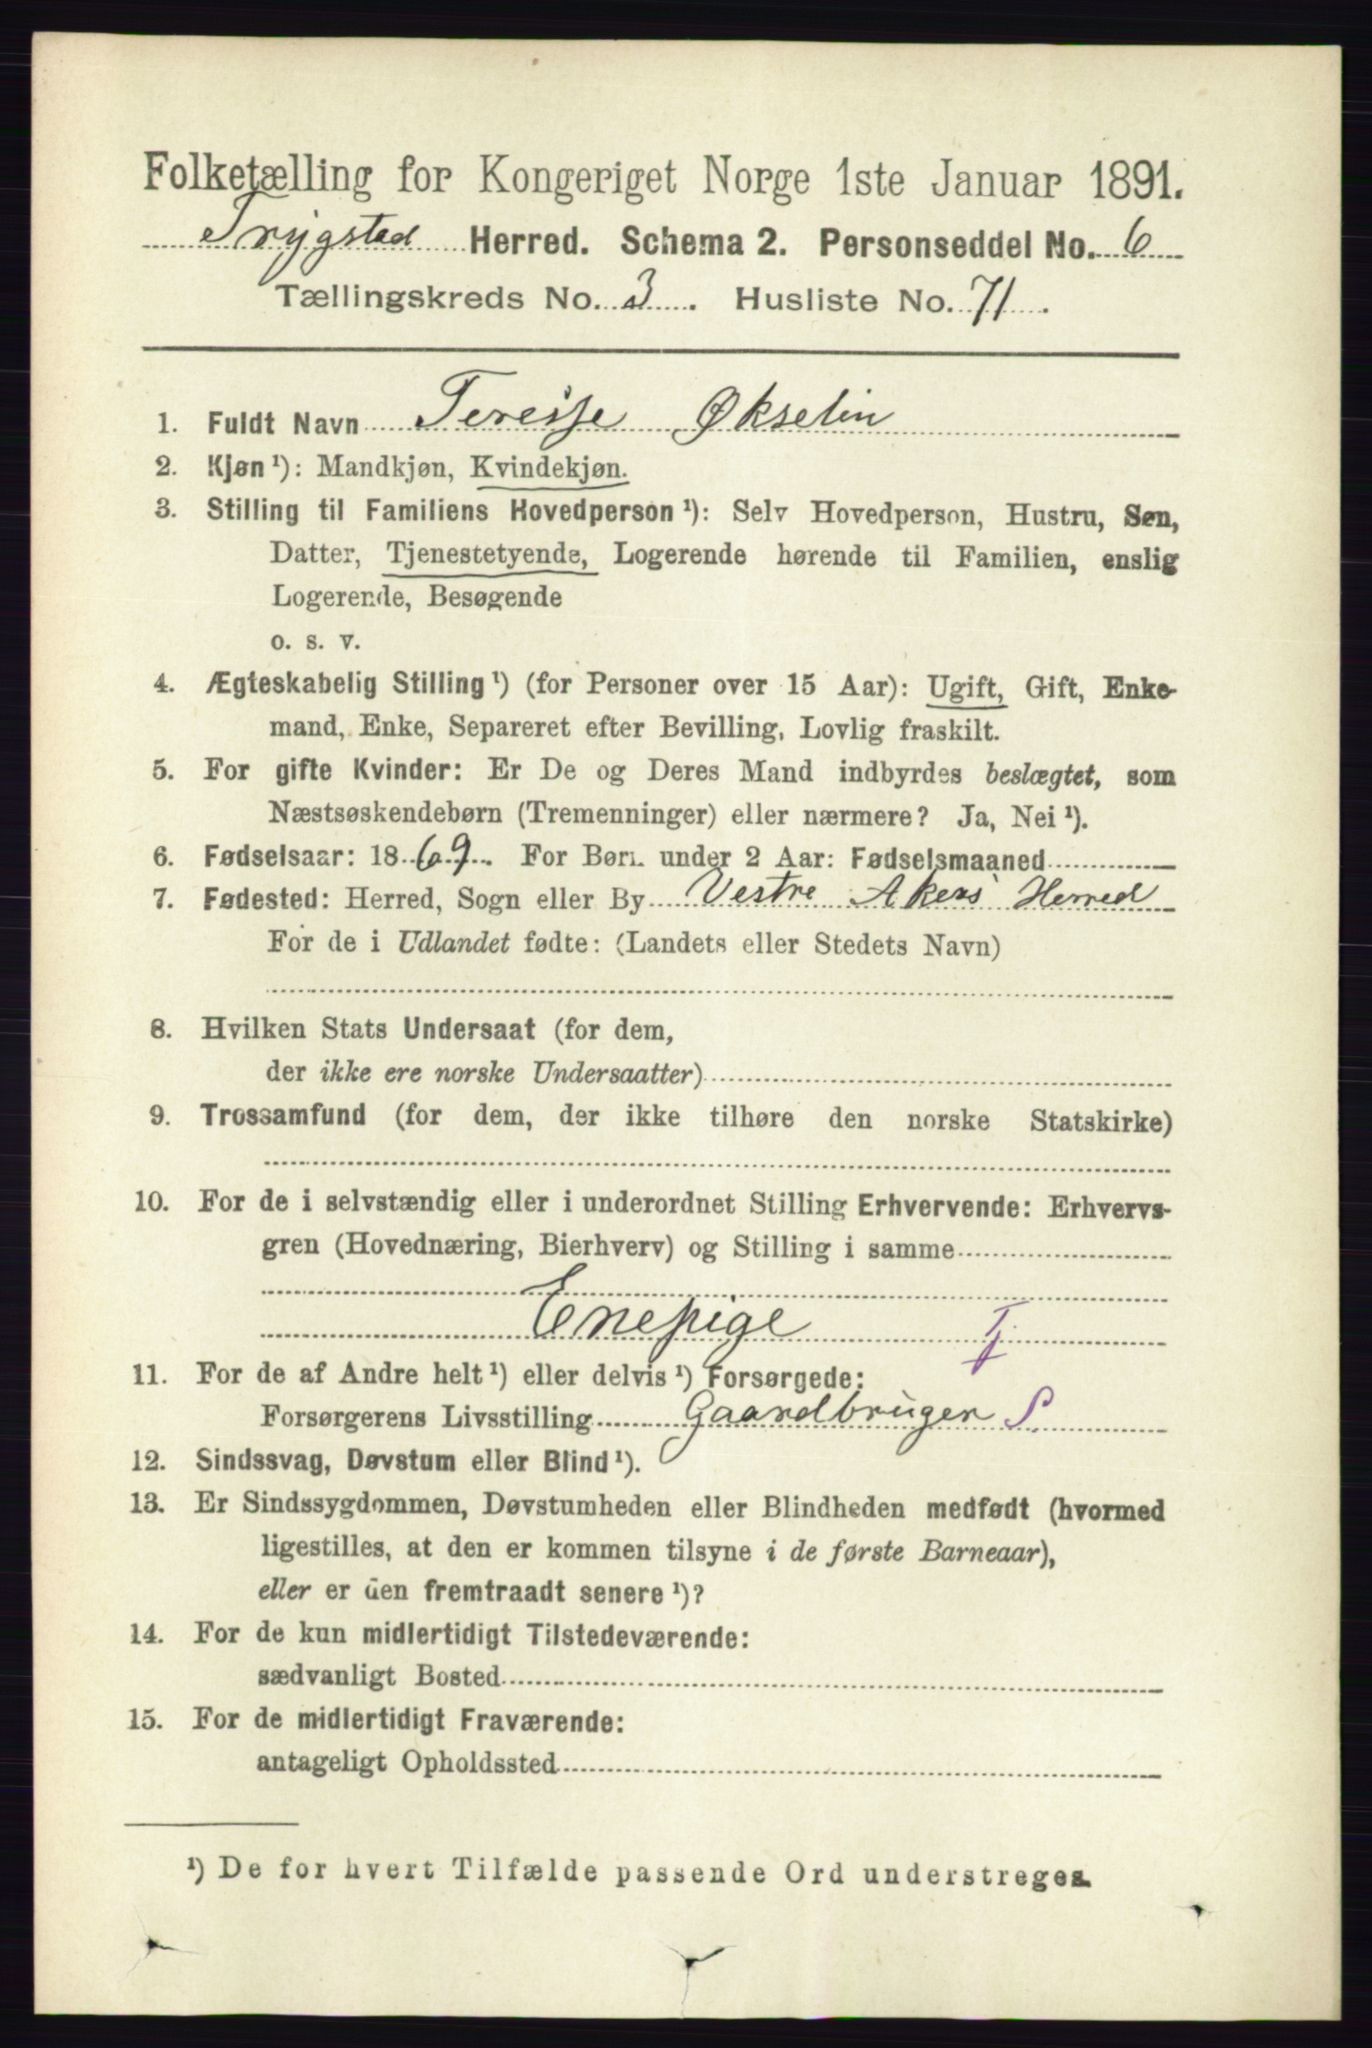 Folketælling for Kongeriget Norge 1ste Januar 1891.
Trygstad Herred. Schema 2. Personseddel No. 6
Tællingskreds No. 3. Husliste No. 71.
1. Fuldt Navn Teresse Økselin
2. Kjøn ¹): Mandkjøn, Kvindekjøn.
3. Stilling til Familiens Hovedperson ¹): Selv Hovedperson, Hustru, Søn,
Datter, Tjenestetyende, Logerende hørende til Familien, enslig
Logerende, Besøgende
o. s. v.
4. Ægteskabelig Stilling ¹) (for Personer over 15 Aar): Ugift, Gift, Enke-
mand, Enke, Separeret efter Bevilling, Lovlig fraskilt.
5. For gifte Kvinder: Er De og Deres Mand indbyrdes beslægtet, som
Næstsøskendebørn (Tremenninger) eller nærmere? Ja, Nei ¹).
6. Fødselsaar: 1869. For Børn under 2 Aar: Fødselsmaaned
7. Fødested: Herred, Sogn eller By Vestre Akers Herred
For de i Udlandet fødte: (Landets eller Stedets Navn)
8. Hvilken Stats Undersaat (for dem,
der ikke ere norske Undersaatter)
9. Trossamfund (for dem, der ikke tilhøre den norske Statskirke)
10. For de i selvstændig eller i underordnet Stilling Erhvervende: Erhvervs-
gren (Hovednæring, Bierhverv) og Stilling i samme
Enepige Tj
11. For de af Andre helt ¹) eller delvis ¹) Forsørgede:
Forsørgerens Livsstilling Gaardbruger S.
12. Sindssvag, Døvstum eller Blind ¹).
13. Er Sindssygdommen, Døvstumheden eller Blindheden medfødt (hvormed
ligestilles, at den er kommen tilsyne i de første Barneaar),
eller er den fremtraadt senere ¹)?
14. For de kun midlertidigt Tilstedeværende:
sædvanligt Bosted
15. For de midlertidigt Fraværende:
antageligt Opholdssted
¹) De for hvert Tilfælde passende Ord understreges.